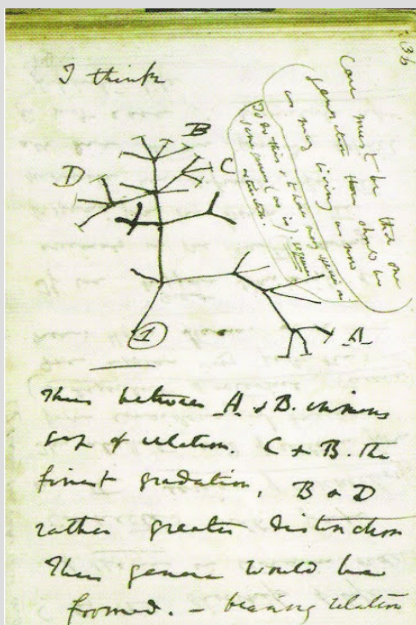 I think
Case must be that one
generation then should be
as many living as now
To do this & to have many species in
same genus (as is) requires
extinction.
B
C
D
A
1
36
Thus between A & B. immens
gap of relation. C & B. the
finest gradation, B & D
rather greater distinction
Thus genera would be
formed. — bearing relation